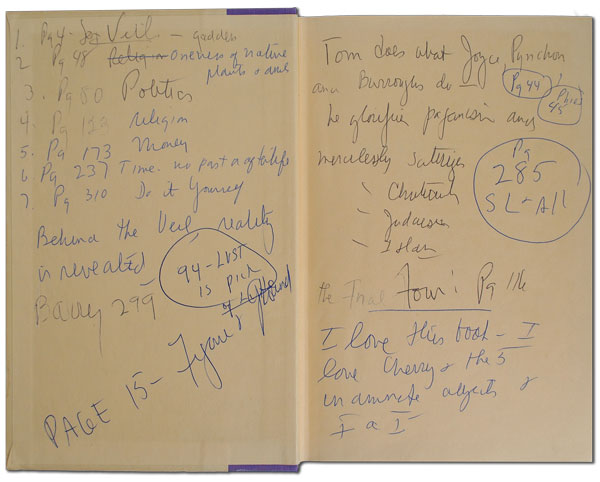 1. Pg 4 - Veil - goddess
2 Pg 48 Religion Oneness of native
plants
3. Pg 80 Politics
4. Pg religion
5. Pg 173 Money
6 Pg 237 Time. no past or
7. Pg 310 Do it yourself
Behind the Veil reality
is revealed
94 - LUST
is pick
Barry 299
PAGE 15 -
Tom does what Joyce, Pynchon
and Burroughs do -
Pg 44
he glorifies paganism and
mercilessly satirizes
Pg
285
\ Judaism
\ Islam
the Final Four: Pg 116
I love this book - I
love Cherry & the 5
inanimate objects &